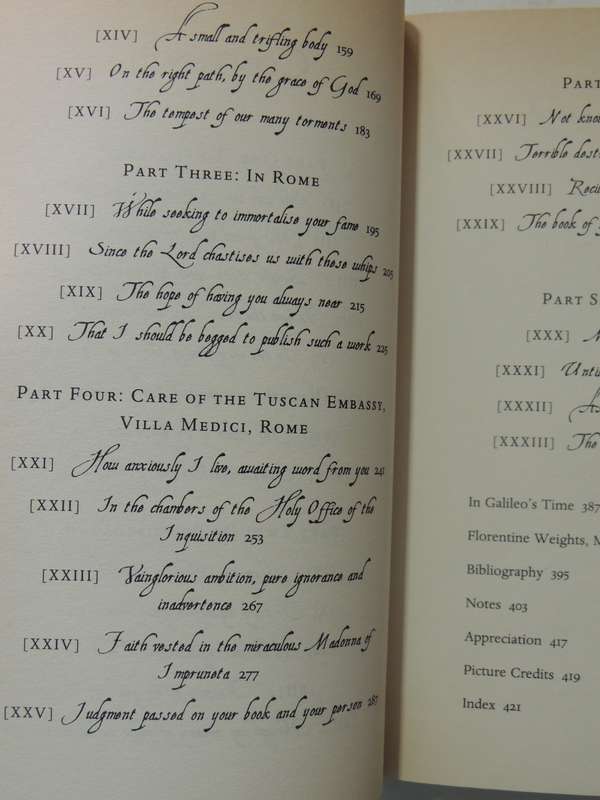 [XIV] A small and trifling body 159
[XV] On the right path, by the grace of God 169
[XVI] The tempest of our many torments 183
PART THREE: IN ROME
[XVII] While seeking to immortalise your fame 195
[XVIII] Since the Lord chastises us with these whips 205
[XIX] The hope of having you always near 215
[XX] That I should be begged to publish such a work 225
PART FOUR: CARE OF THE TUSCAN EMBASSY,
VILLA MEDICI, ROME
[XXI] How anxiously I live, awaiting word from you 241
[XXII] In the chambers of the Holy Office of the
Inquisition 253
[XXIII] Vainglorious ambition, pure ignorance and
inadvertence 267
[XXIV] Faith vested in the miraculous Madonna of
Impruneta 277
[XXV] Judgment passed on your book and your person 287
PART
[XXVI] Not
[XXVII] Terrible
[XXVIII]
[XXIX] The book of
PART S
[XXX]
[XXXI]
[XXXII]
[XXXIII] The
In Galileo's Time 387
Florentine Weights, M
Bibliography 395
Notes 403
Appreciation 417
Picture Credits 419
Index 421